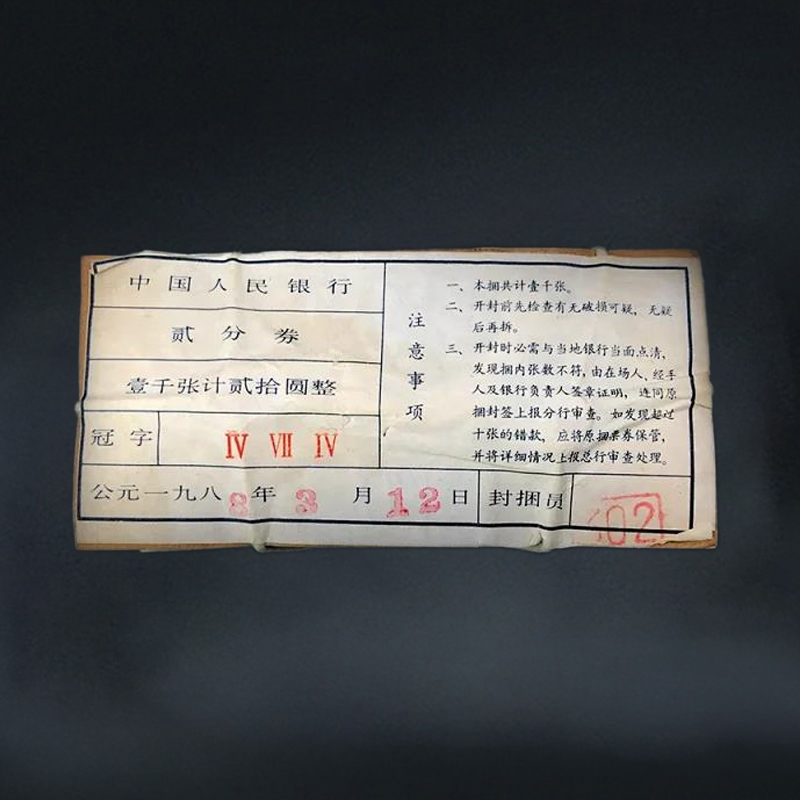 中国人民银行
贰分券
壹千张计贰拾圆整
冠字 Ⅳ Ⅶ Ⅳ
公元一九八8年3月12日 封捆员 102
注意事项
一、本捆共计壹千张。
二、开封前先检查有无破损可疑，无疑
后再拆。
三、开封时必需与当地银行当面点清，
发现捆内张数不符，由在场人、经手
人及银行负责人签章证明，连同原
捆封签上报分行审查。如发现超过
十张的错款，应将原捆票券保管，
并将详细情况上报总行审查处理。